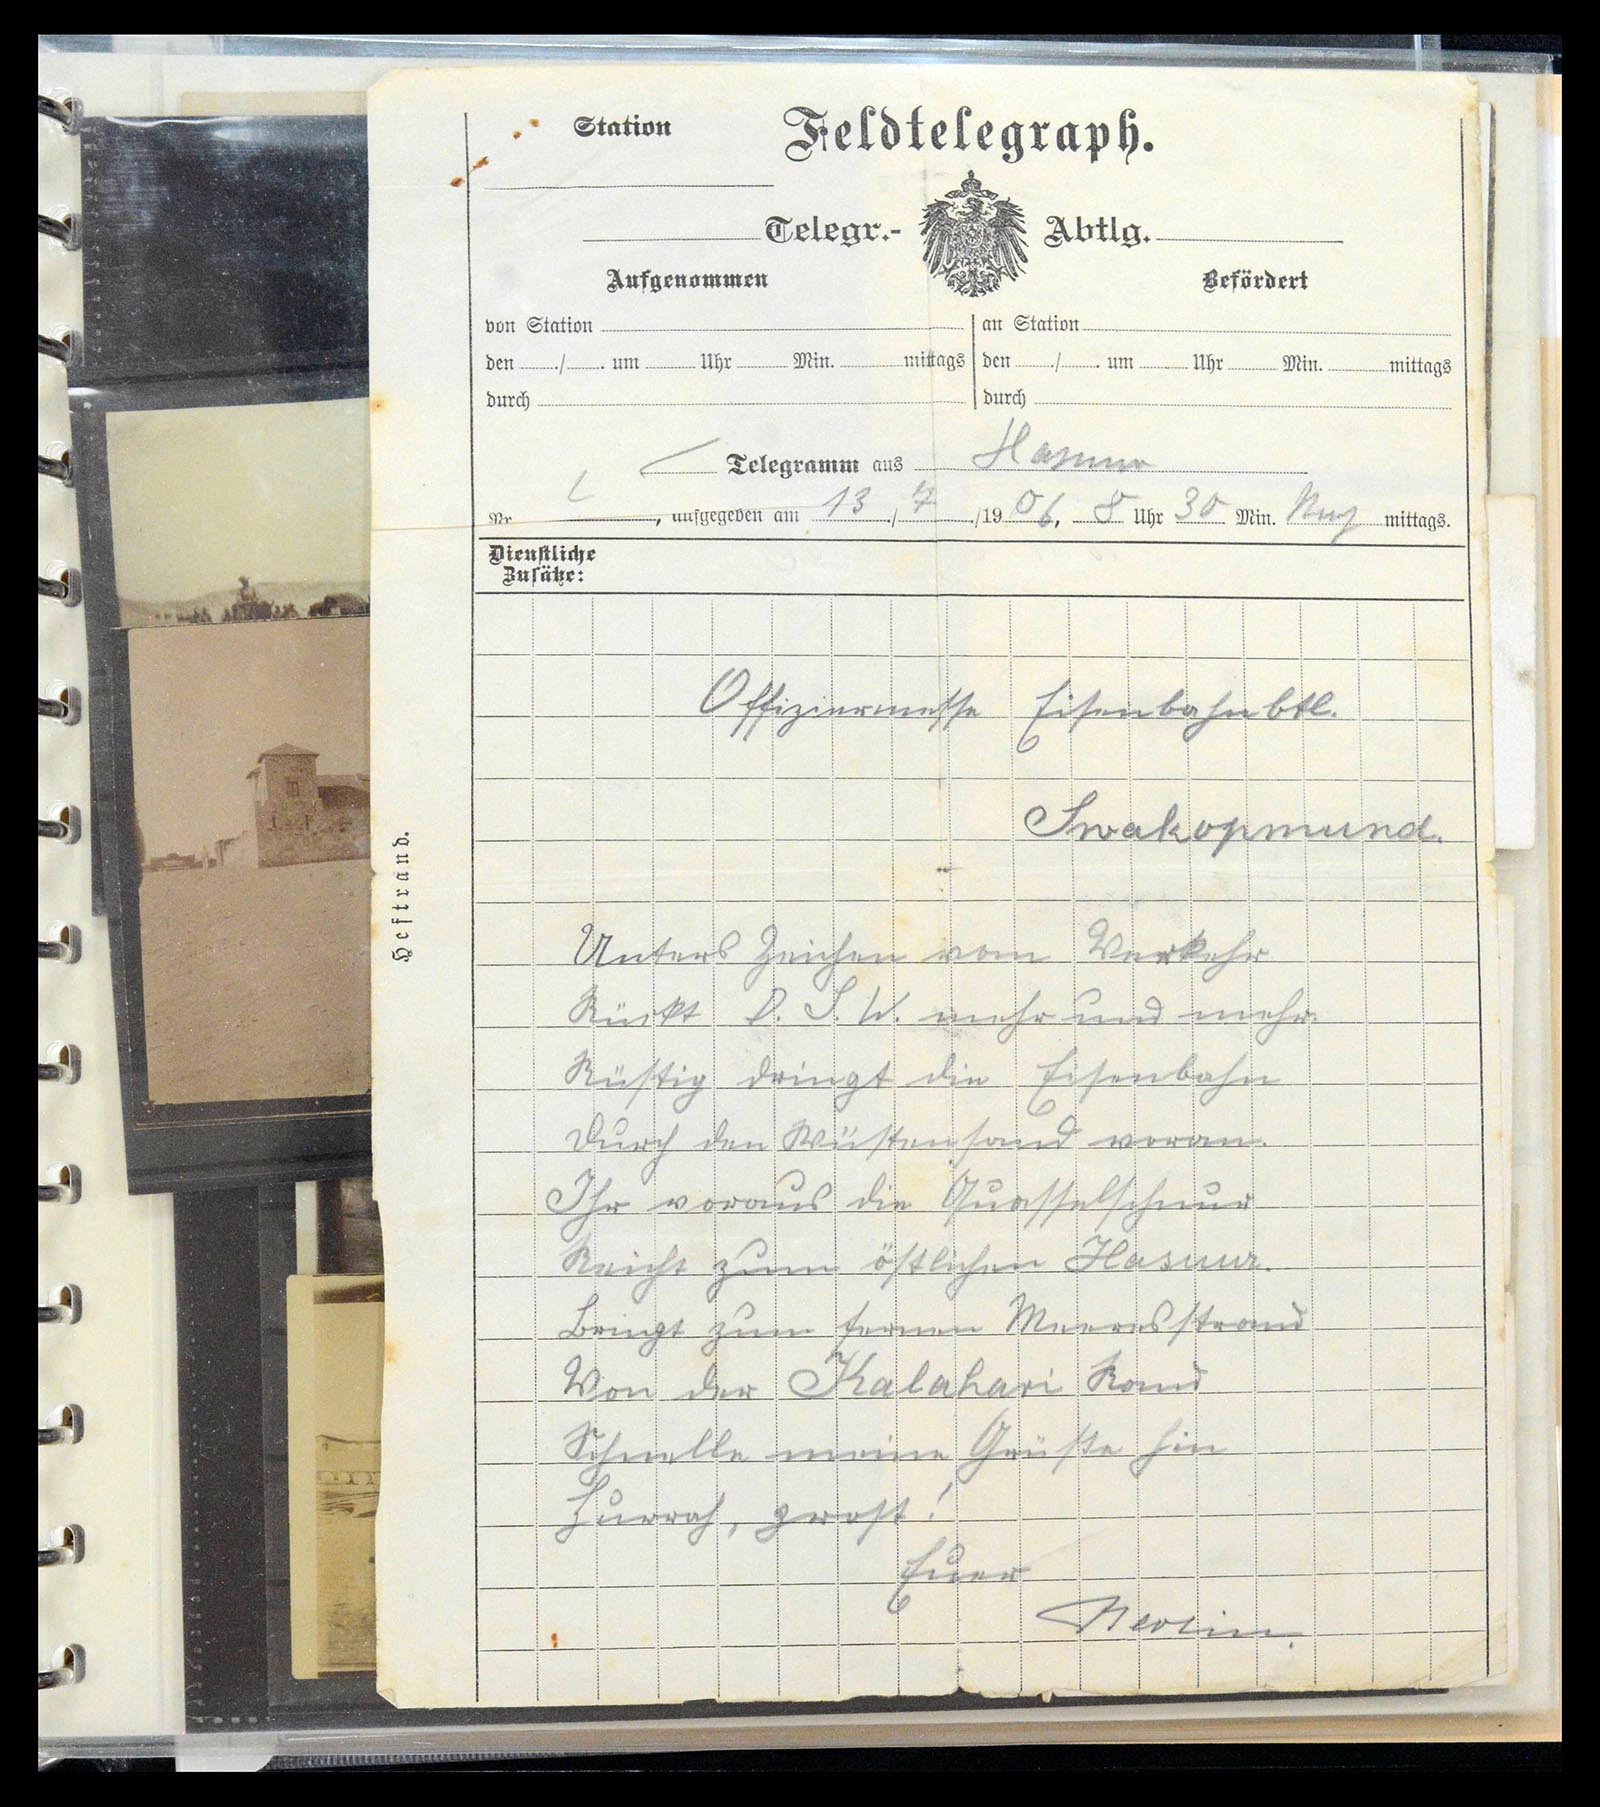 Station Feldtelegraph.
Telegr.- Abtlg.
Aufgenommen Befördert
von Station an Station
den / . um Uhr Min. mittags den / . um Uhr Min. mittags
durch durch
Telegramm aus Hasuur
Nr. , aufgegeben am 13/7/1906, 8 Uhr 30 Min. mittags.
Dienstliche
Zusätze:
Offiziermesse Eisenbahnbtl.
Swakopmund.
Heftrand.
Unters Zeichen vom Verkehr
Rückt D. S. W. mehr und mehr.
Rüstig dringt die Eisenbahn
Durch den Wüstensand voran.
Ihr voraus die Quasselschnur
Reicht zum östlichen Hasuur.
Bringt zum fernen Meeresstrand
Von der Kalahari Rand
Schnelle meine Grüße hin
Hurrah, prost!
Euer